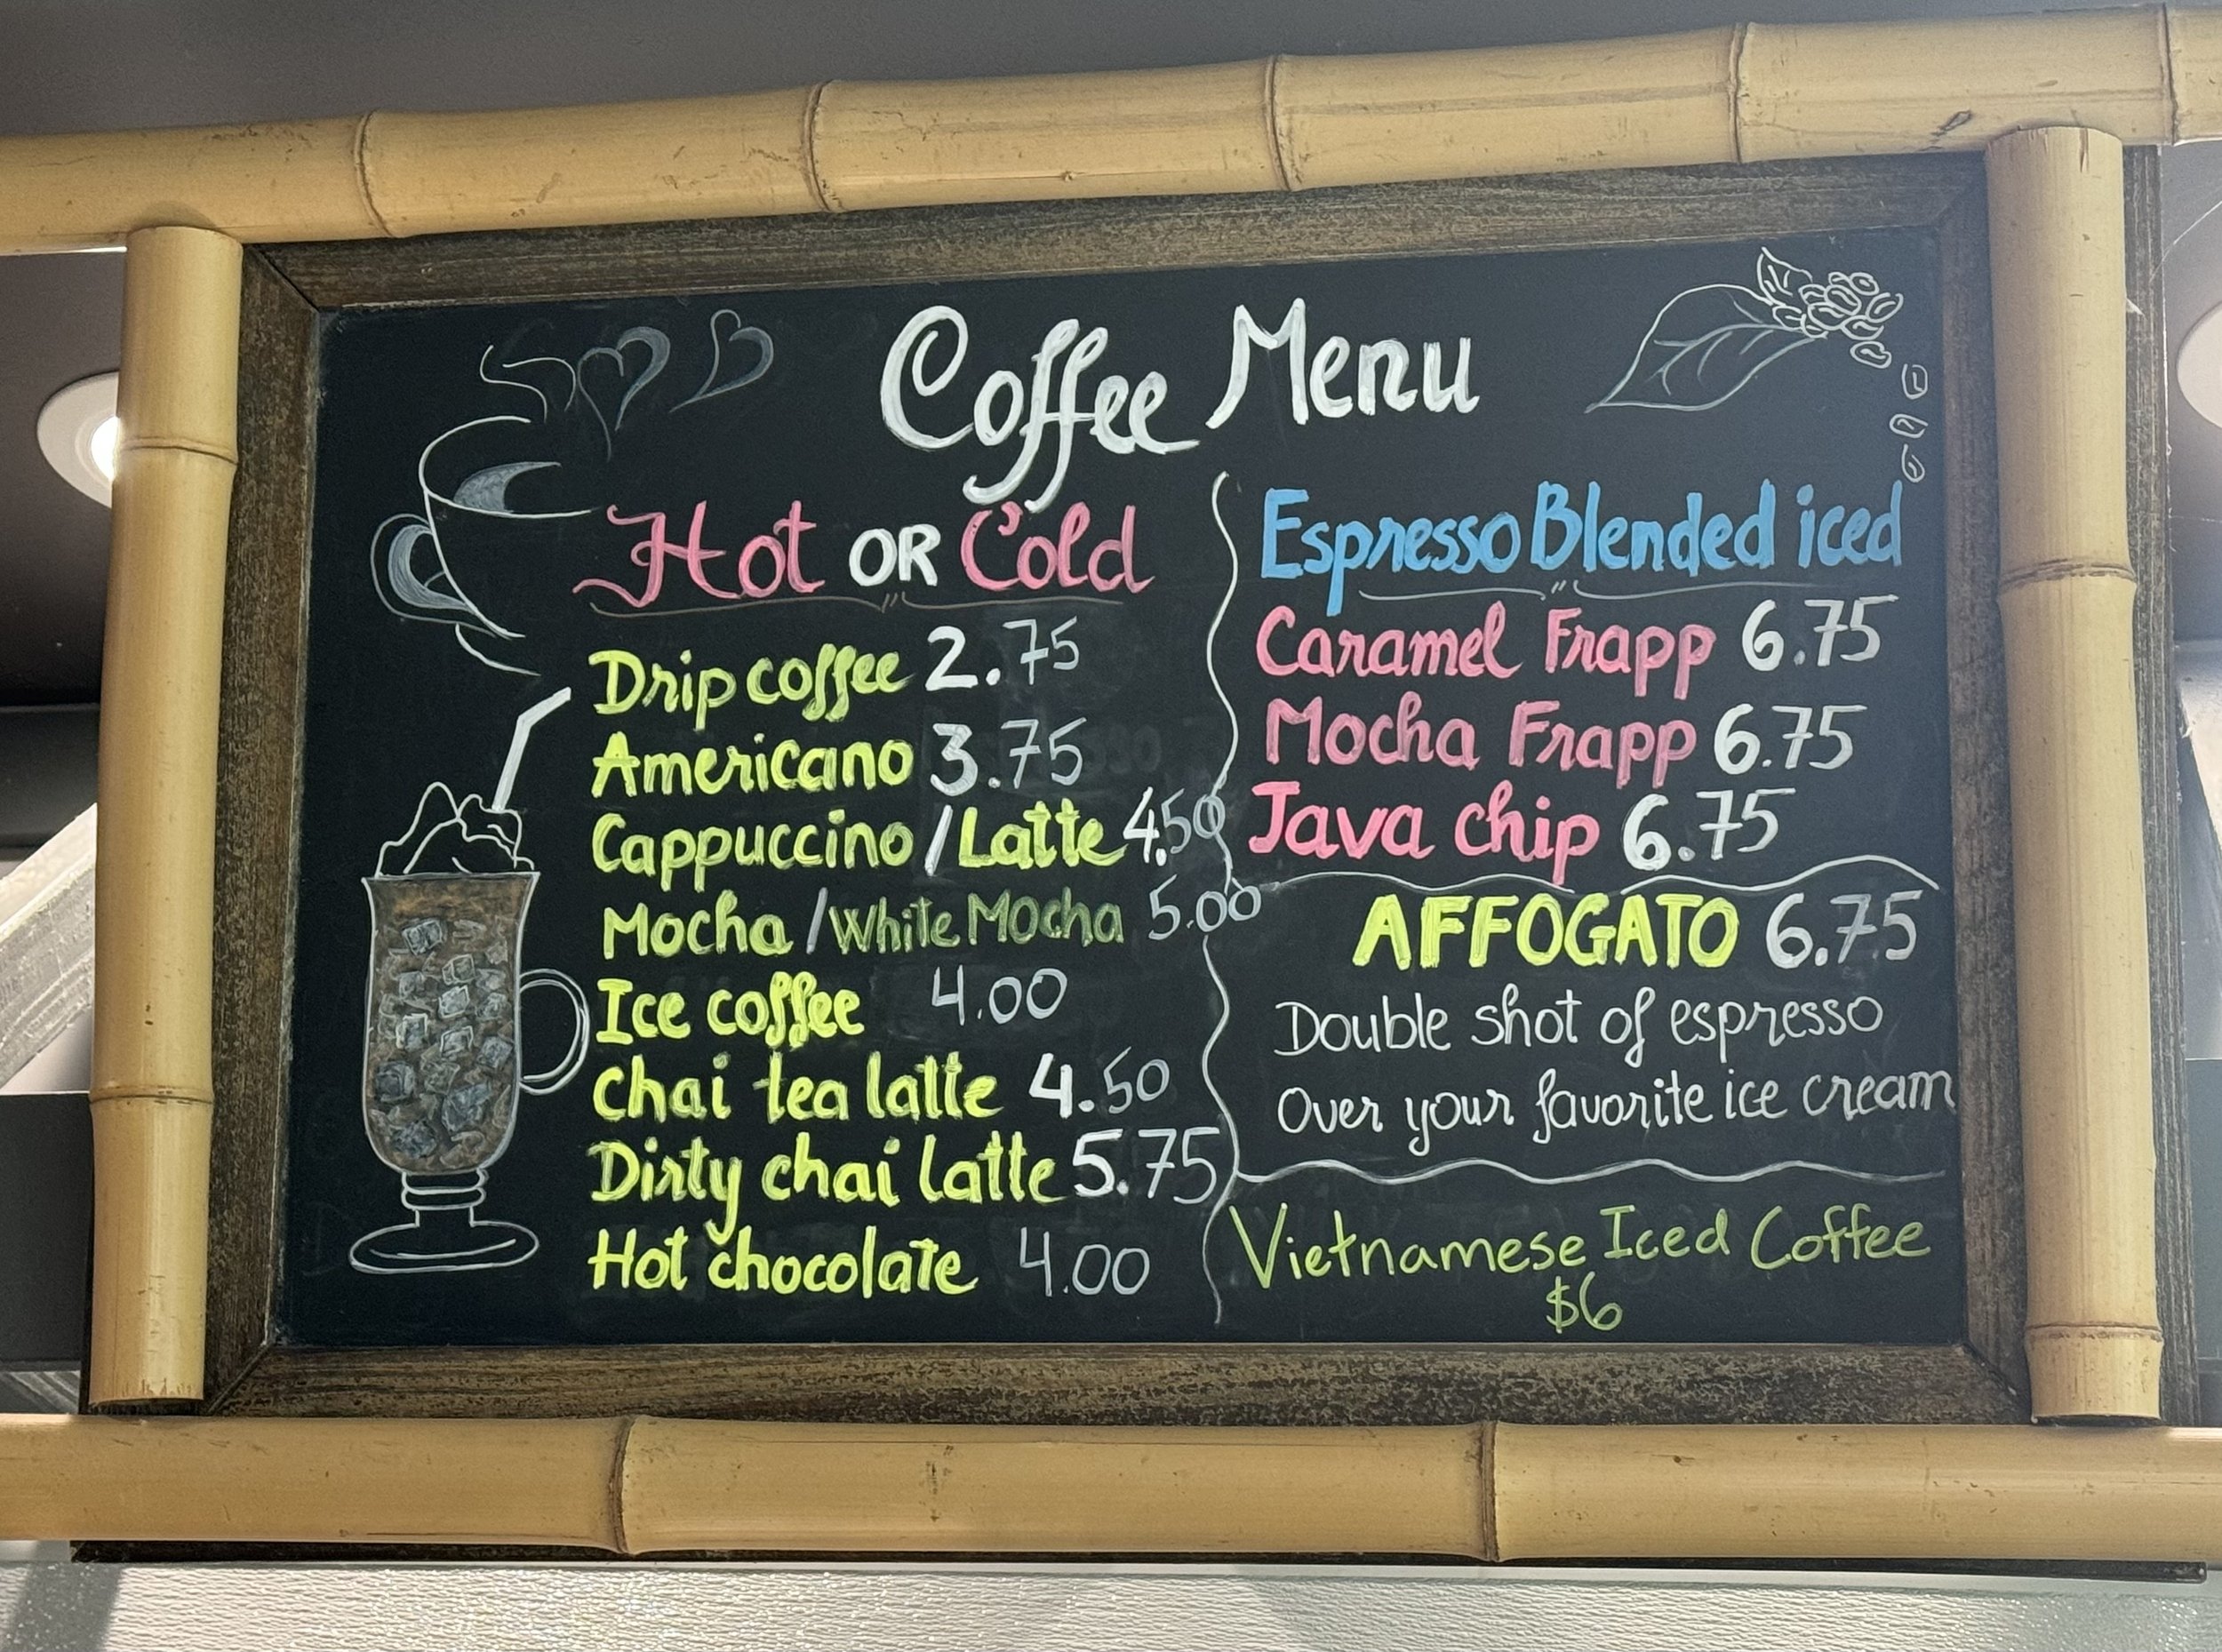 Coffee Menu
Hot OR Cold
Drip coffee 2.75
Americano 3.75
Cappuccino / Latte 4.50
Mocha / White Mocha 5.00
Ice coffee 4.00
Chai tea latte 4.50
Dirty chai latte 5.75
Hot chocolate 4.00
Espresso Blended iced
Caramel Frapp 6.75
Mocha Frapp 6.75
Java chip 6.75
AFFOGATO 6.75
Double shot of espresso
Over your favorite ice cream
Vietnamese Iced Coffee
$6